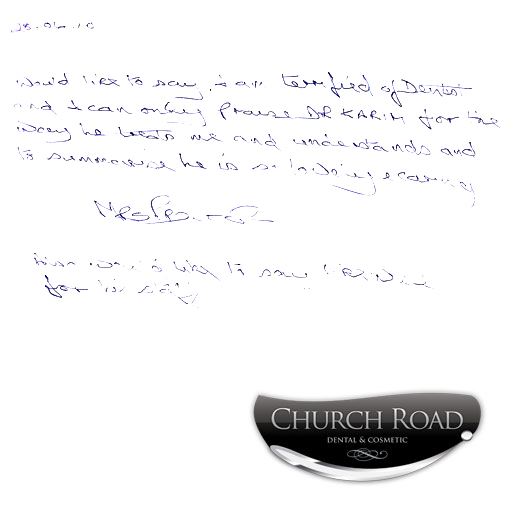 would like to say, i am terrified of Dentist
and i can only Praise DR KARIM for the
way he treats me and understands and
to summarise he is so loving & caring
would like to say
for his
CHURCH ROAD
DENTAL & COSMETIC